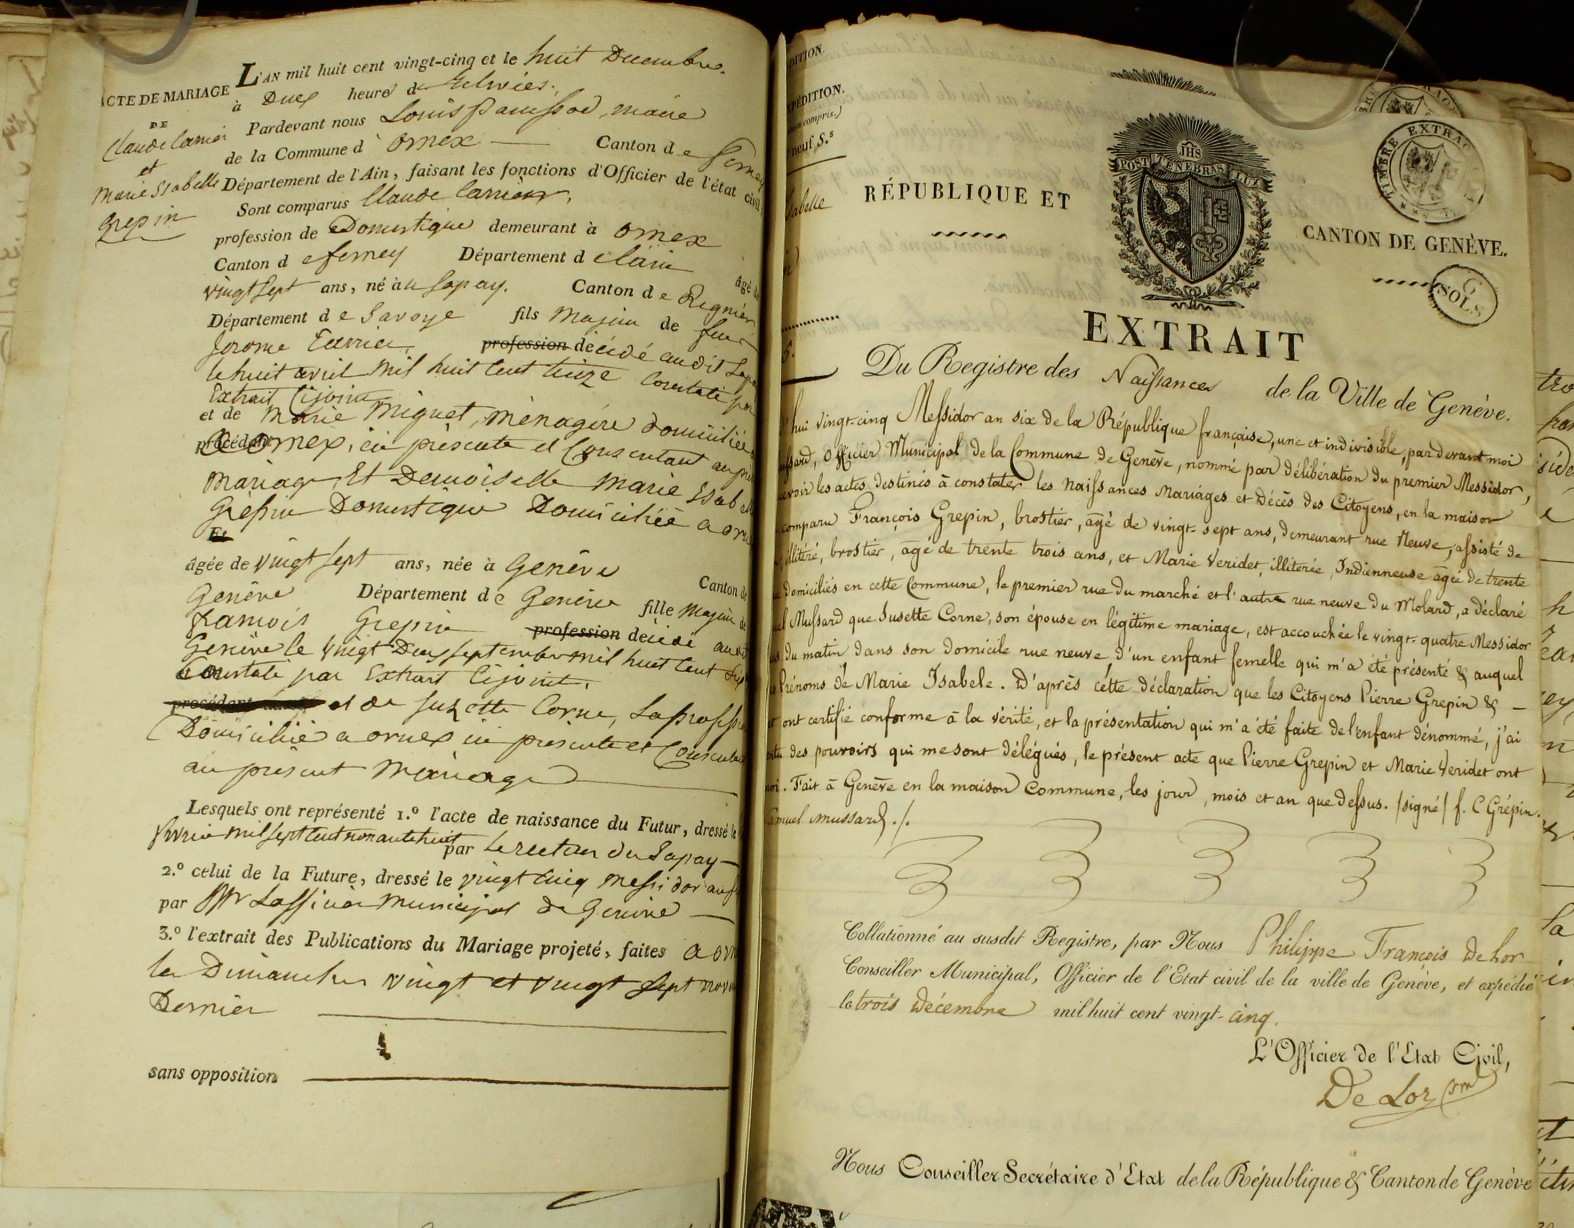 ACTE DE MARIAGE
DE
Claude Carrier
et
Marie Isabelle
Grepin
L'AN mil huit cent vingt-cinq et le huit Decembre
à Deux heures de relevées.
Pardevant nous Louis maire
de la Commune d'Ornex Canton de ferney
Département de l'Ain, faisant les fonctions d'Officier de l'état civil
Sont comparus Claude Carrier,
profession de Domestique demeurant à ornex
Canton de ferney Département de l'ain âgé de
vingt sept ans, né au Sapay. Canton de Regnier
Département de Savoye fils majeur de feu
Jerome Carrier, profession décédé audit Sapay
le huit avril mil huit cent treize Constaté par
Extrait Cijoint
et de Marie Miguet, ménagère domiciliée
a ornex, ici présente et Consentant au présent
mariage, Et Demoiselle Marie Isabelle
Grépin Domestique Domiciliée a ornex
Et
âgée de vingt sept ans, née à Genève Canton de
Genève Département de Genève fille majeure de
francois Grepin profession décédé audit
Genève le vingt Deux septembre mil huit cent
Constaté par Extrait Cijoint,
procédant et de Suzette Corne,
Domiciliée a ornex ici presente et Consentant
au présent mariage
Lesquels ont représenté 1.º l'acte de naissance du Futur, dressé le
mil sept cent nonante huit par le recteur du Sapay
2.º celui de la Future, dressé le vingt cinq messidor an six
par L'officier municipal de Genève
3.º l'extrait des Publications du Mariage projeté, faites a ornex
les Dimanches vingt et vingt sept novembre
Dernier
sans opposition
DITION.
PÉDITION.
compris.)
neuf S.s
Isabelle
RÉPUBLIQUE ET
IHS
POST TENEBRAS LUX
CANTON DE GENÈVE.
TIMBRE EXTRAO
TIMBRE EXTRA
6 SOLS
EXTRAIT
Du Registre des Naissances de la Ville de Genève.
hui vingt-cinq Messidor an six de la République française, une et indivisible, pardevant moi
ussard, Officier Municipal de la Commune de Genève, nommé par délibération du premier Messidor,
evoir les actes destinés à constater les Naissances Mariages et Décès des Citoyens, en la maison
comparu François Grepin, brostier, âgé de vingt-sept ans, demeurant rue Neuve, assisté de
illitéré, brostier, âgé de trente trois ans, et Marie Veridet, illiterée, Indienneuse âgée de trente
domiciliés en cette Commune, le premier rue du marché et l'autre rue neuve du Molard, a déclaré
el Mussard que Susette Corne, son épouse en légitime mariage, est accouchée le vingt-quatre Messidor
du matin dans son domicile rue neuve d'un enfant femelle qui m'a été présenté & auquel
Prénoms de Marie Isabele. D'après cette déclaration que les Citoyens Pierre Grepin &
ont certifié conforme à la vérité, et la présentation qui m'a été faite de l'enfant dénommé, j'ai
des pouvoirs qui me sont délégués, le présent acte que Pierre Grepin et Marie Veridet ont
moi. Fait à Genève en la maison Commune, les jour, mois et an que dessus. /signé/ f. C Grépin.
muel Mussard ./.
Collationné au susdit Registre, par Nous Philippe François Delor
Conseiller Municipal, Officier de l'Etat civil de la ville de Genève, et expédié
le trois Décembre mil huit cent vingt-cinq.
L'Officier de l'Etat Civil,
De Lor
Nous Conseiller Secrétaire d'Etat de la République & Canton de Genève